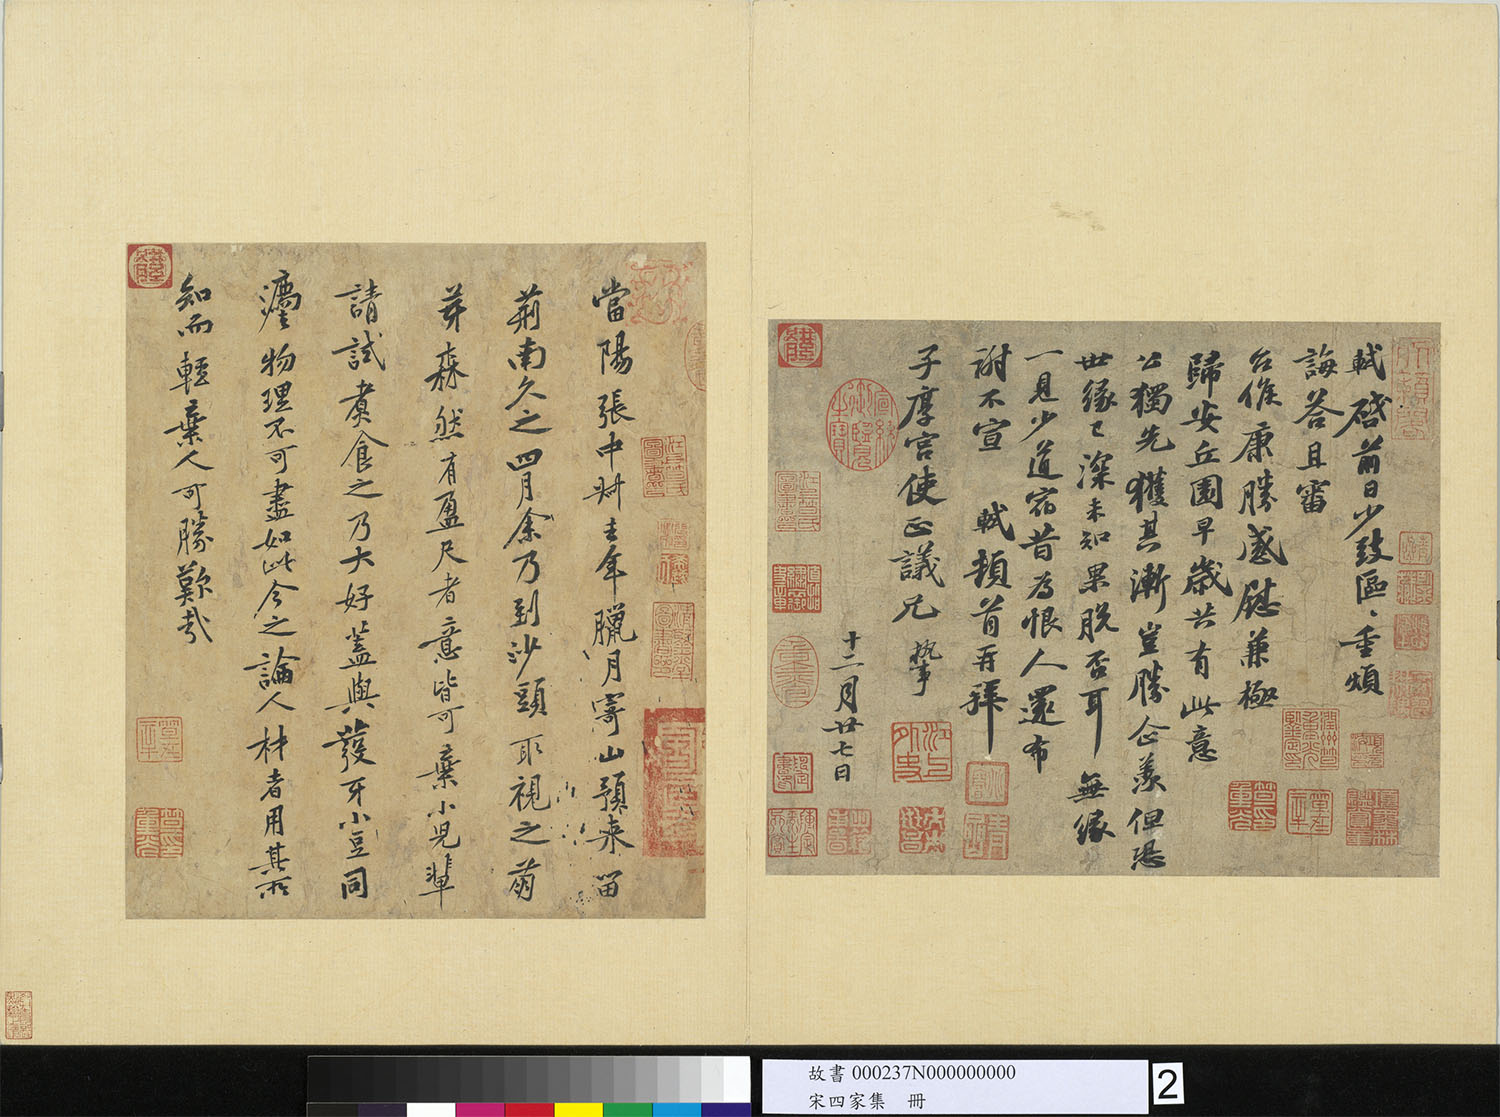 軾啓前日少致區、重煩
誨荅且審
台候康勝感慰兼極
歸安丘園早歲共有此意
公獨先獲其漸豈勝企羨但恐
世緣已深未知果脫否耳無緣
一見少道宿昔為恨人還布
謝不宣 軾頓首再拜
子厚宮使正議兄 執事
十二月廿七日
當陽張中叔去年臘月寄山預來留
荊南久之四月余乃到沙頭取視之萌
芽森然有盈尺者意皆可棄小兒輩
請試煑食之乃大好蓋與發牙小豆同
灋物理不可盡如此今之論人材者用其所
知而輕棄人可勝歎哉
故書 000237N000000000
宋四家集 冊
2